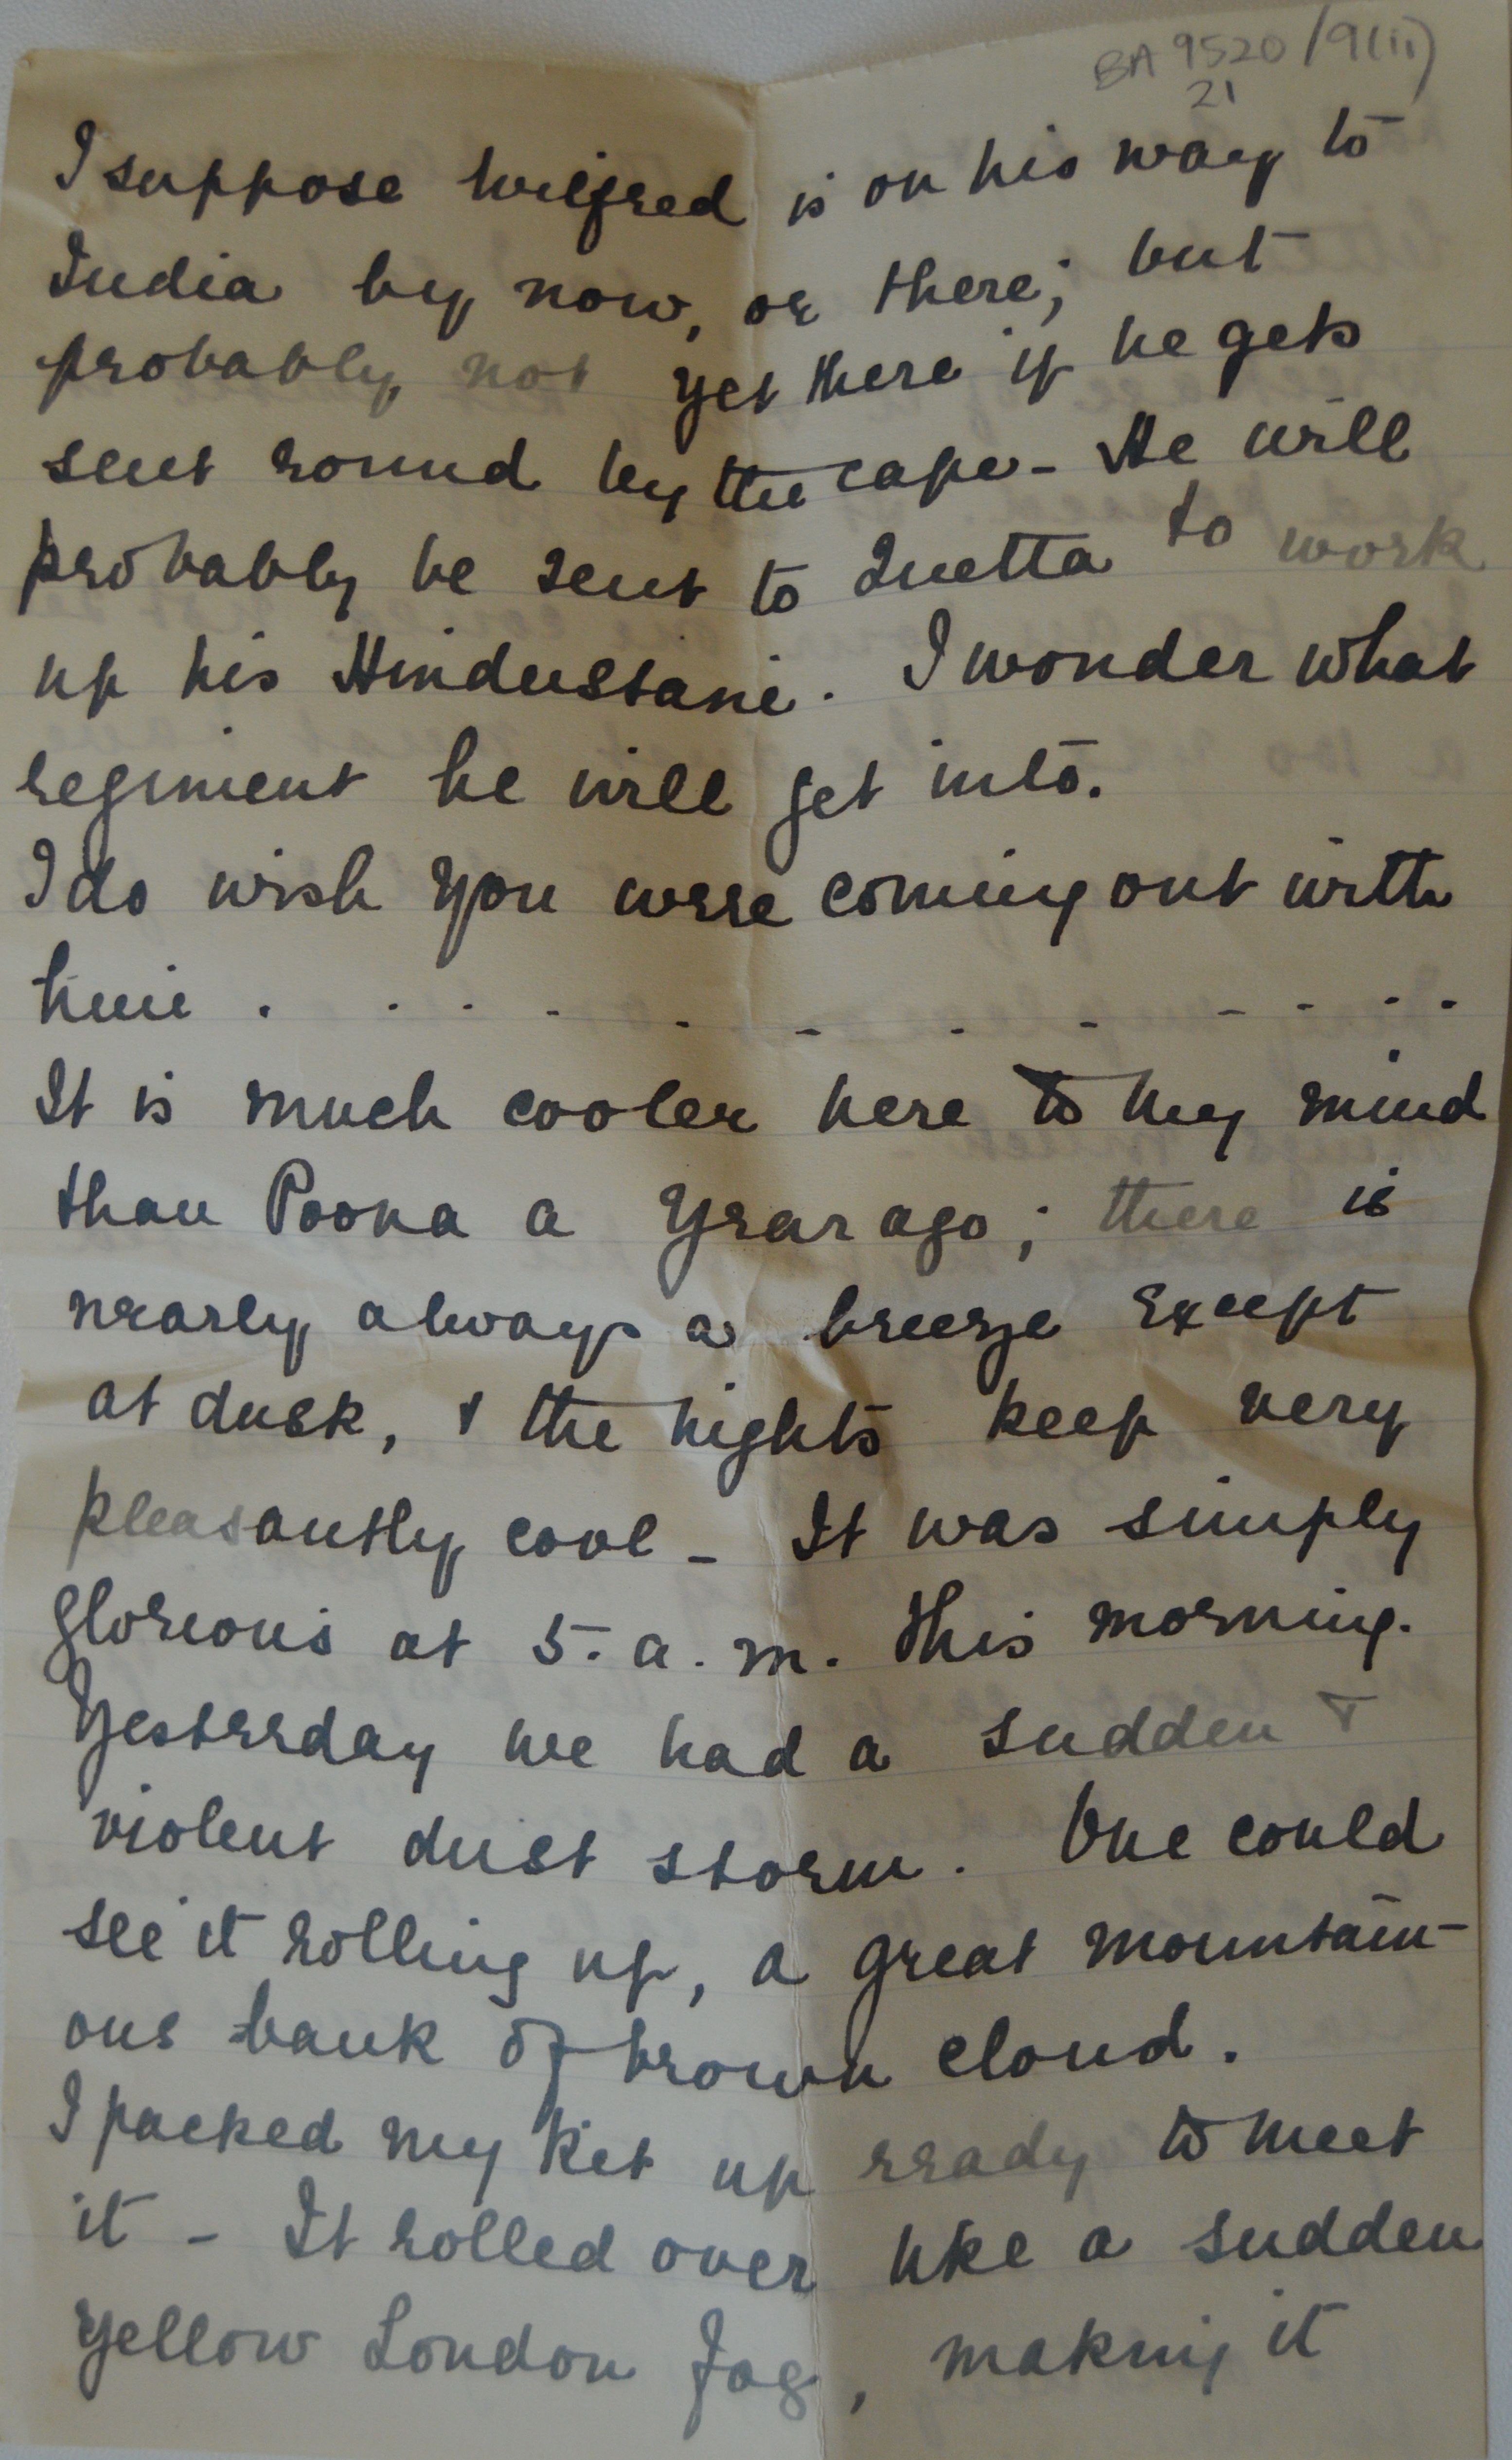 BA 9520/9(ii)
21
I suppose Wilfred is on his way to
India by now, or there; but
probably not yet there if he gets
sent round by the cape - He will
probably be sent to Quetta to work
up his Hindustani. I wonder what
regiment he will get into.
I do wish you were coming out with
him . . . . . . . . . . . .
It is much cooler here to my mind
than Poona a year ago; there is
nearly always a breeze except
at dusk, & the nights keep very
pleasantly cool - It was simply
glorious at 5. a. m. this morning.
Yesterday we had a sudden &
violent dust storm. One could
see it rolling up, a great mountain-
ous bank of brown cloud.
I packed my kit up ready to meet
it - It rolled over like a sudden
yellow London fog, making it